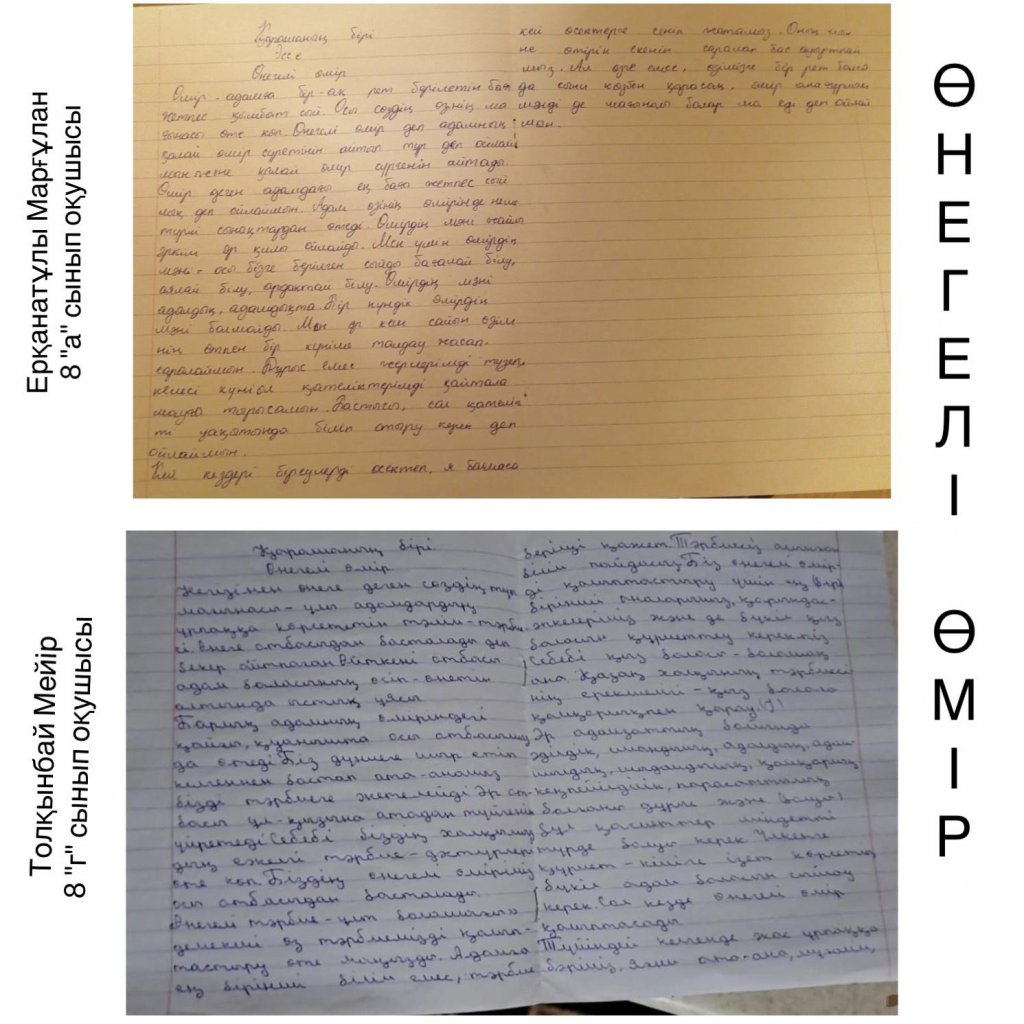 Ерқанатұлы Марғұлан
8 "а" сынып оқушысы
Қарашаның бірі
Эссе
Өнегелі өмір
Өмір - адамға бір-ақ рет берілетін баға
жетпес қымбат сый. Осы сөздің өзінің ма
ғынасы өте көп. Өнегелі өмір деп адамның
қалай өмір сүретінін айтып тұр деп ойлай
мын және қалай өмір сүргенін айтады.
Өмір деген адамдағы ең баға жетпес сый
лық деп ойлаймын. Адам өзінің өмірінде неше
түрлі сынақтардан өтеді. Өмірдің мәні жайлы
әркім әр қилы ойлайды. Мен үшін өмірдің
мәні - осы бізге берілген сыйды бағалай білу,
аялай білу, ардақтай білу. Өмірдің мәні
адалдық, адамдықта. Бір күндік өмірдің
мәні болмайды. Мен әр кеш сайын өзім
нің өткен бір күніме талдау жасап,
саралаймын. Дұрыс емес жерлерімді түзеп,
келесі күні ол қателіктерімді қайтала
мауға тырысамын. Бастысы, сол қателік
ті уақытында біліп отыру керек деп
ойлаймын.
Кей кездері біреулерді өсектеп, я болмаса
кей өсектерге сеніп жатамыз. Оның шын
не өтірік екенін саралап бас ауыртпай
мыз. Ал өзге емес, өзімізге бір рет болса
да сыни көзбен қарасақ, өмір анағұрлым
мәнді де мағыналы болар ма еді деп ойлай
мын.
Толқынбай Мейір
8 "г" сынып оқушысы
Қарашаның бірі
Өнегелі өмір
Негізінен өнеге деген сөздің түп
мағынасы - ұлы адамдардың
ұрпаққа көрсететін тәлім-тәрбие
сі. Өнеге отбасыдан басталады деп
бекер айтпаған. Өйткені отбасы
адам баласының өсіп-өнетін
алтында ыстық ұясы.
Барлық адамның өміріндегі
қайғы, қуанышта осы отбасының
да өтеді. Біз дүниеге шыр етіп
келгеннен бастап ата-анамыз
бізді тәрбиеге жетелейді. Әр от-
басы ұл-қызына атадан түйгенін
үйретеді. Себебі біздің халқымыз
дың ежелгі тәрбие-дәстүрлері
өте көп. Біздің өнегелі өміріміз
осы отбасыдан басталады.
Өнегелі тәрбие - ұлт болашағы
демекші өз тәрбиемізді қалып-
тастыру өте маңызды. Адамға
ең бірінші білім емес, тәрбие
берілуі қажет. Тәрбиесіз алынған
білім пайдасыз. Біз өнегелі өмір-
ді қалыптастыру үшін ең бірін
бірінші аналарымыз, қарындас-
әпкелеріміз және де бүкіл қыз
баласын құрметтеу керекпіз.
Себебі қыз баласы - болашақ
ана. Қазақ халқының тәрбиесі-
нің ерекшелігі - қыз балаға
қамқорлықпен қарау.
Әр адамзаттың бойында
әділдік, имандылық, адалдық, адам-
шылдық, шыдамдылық, қамқорлық
кеңпейілділік, парасаттылық
болғаны дұрыс және
Бұл қасиеттер міндетті
түрде болуы керек. Үлкенге
құрмет - кішіге ізет көрсетіп
бүкіл адам баласын сыйлау
керек. Сол кезде өнегелі өмір
қалыптасады.
Түйіндей келгенде жас ұрпаққа
бәріміз, яғни ата-ана, мұғалім,
ӨНЕГЕЛІ
ӨМІР